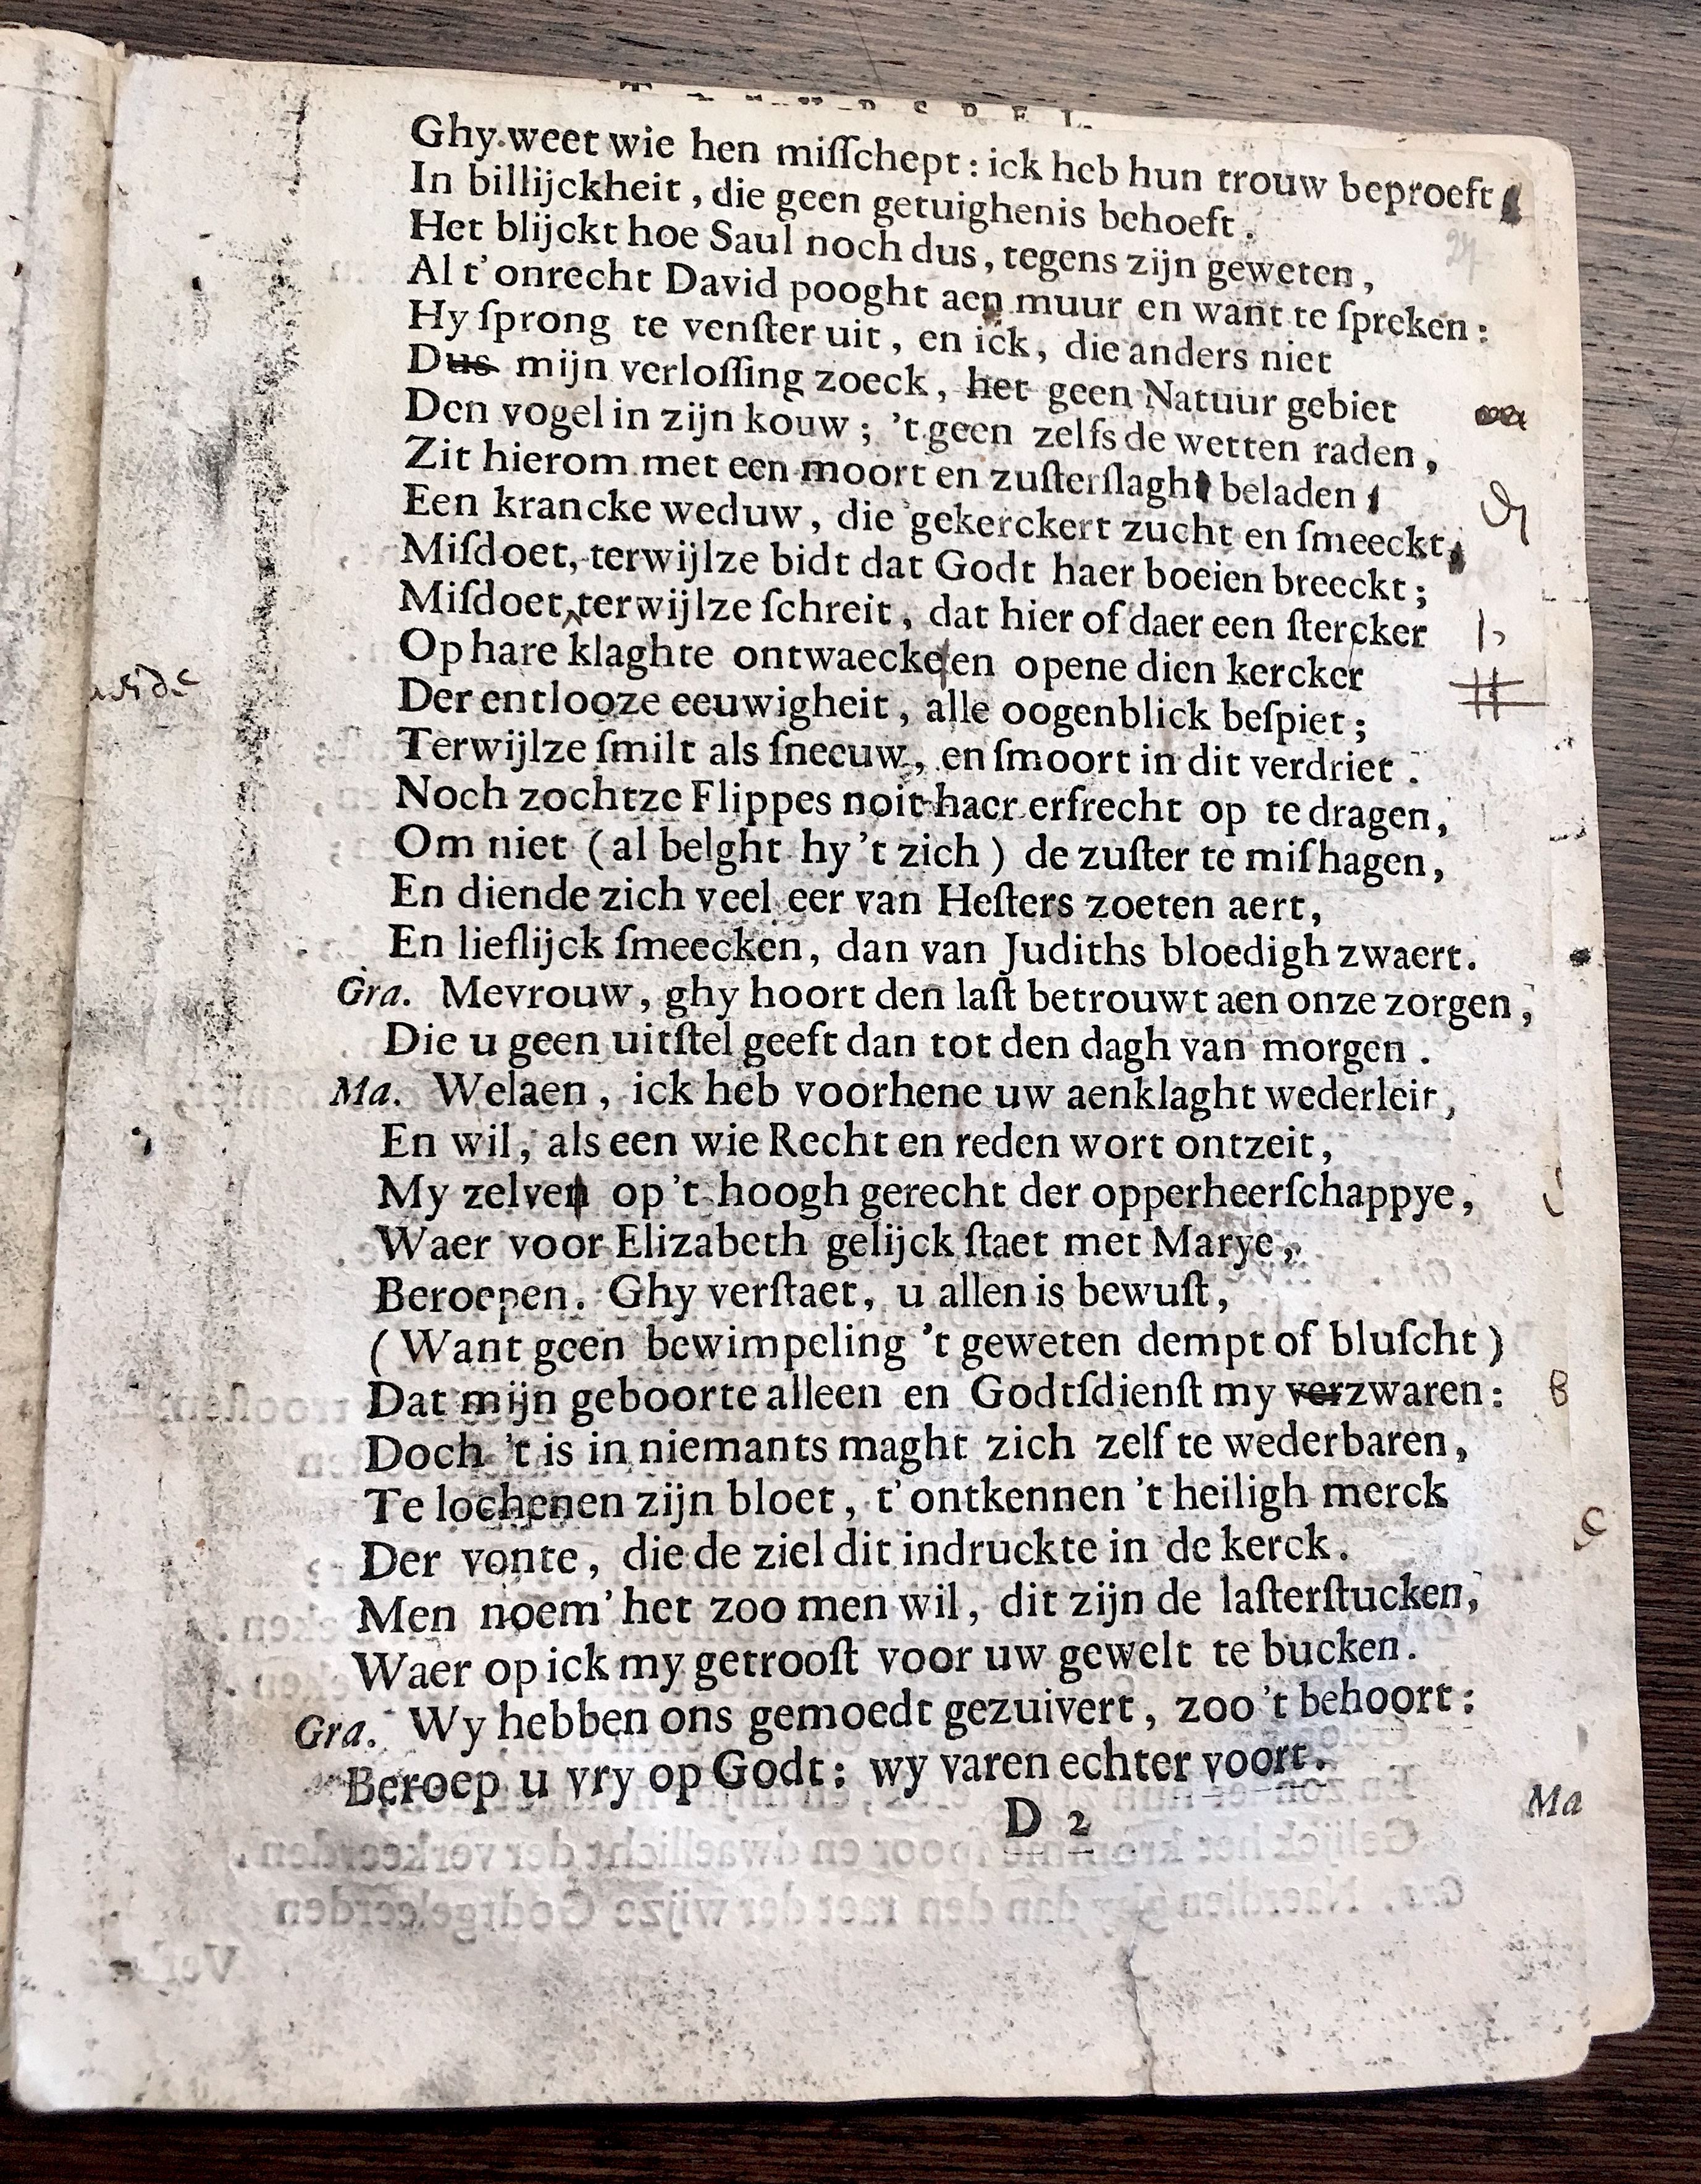 Ghy weet wie hen misſchept: ick heb hun trouw beproeft
In billijckheit, die geen getuighenis behoeft.
Het blijckt hoe Saul noch dus, tegens zijn geweten,
Al t'onrecht David pooght aen muur en want te ſpreken:
Hy ſprong te venſter uit, en ick, die anders niet
Dus mijn verloſſing zoeck, het geen Natuur gebiet
Den vogel in zijn kouw; 't geen zelfs de wetten raden,
Zit hierom met een moort en zuſterſlagh beladen
Een krancke weduw, die gekerckert zucht en ſmeeckt,
Miſdoet, terwijlze bidt dat Godt haer boeien breeckt;
Miſdoet terwijlze ſchreit, dat hier of daer een ſtercker
Op hare klaghte ontwaecke en opene dien kercker
Der entlooze eeuwigheit, alle oogenblick beſpiet;
Terwijlze ſmilt als ſneeuw, en ſmoort in dit verdriet.
Noch zochtze Flippes noit haer erfrecht op te dragen,
Om niet (al belght hy 't zich) de zuſter te miſhagen,
En diende zich veel eer van Heſters zoeten aert,
En lieflijck ſmeecken, dan van Judiths bloedigh zwaert.
Gra. Mevrouw, ghy hoort den laſt betrouwt aen onze zorgen,
Die u geen uitſtel geeft dan tot den dagh van morgen.
Ma. Welaen, ick heb voorhene uw aenklaght wederleit,
En wil, als een wie Recht en reden wort ontzeit,
My zelven op 't hoogh gerecht der opperheerſchappye,
Waer voor Elizabeth gelijck ſtaet met Marye,
Beroepen. Ghy verſtaet, u allen is bewuſt,
(Want geen bewimpeling 't geweten dempt of bluſcht)
Dat mijn geboorte alleen en Godtſdienſt my verzwaren:
Doch 't is in niemants maght zich zelf te wederbaren,
Te lochenen zijn bloet, t'ontkennen 't heiligh merck
Der vonte, die de ziel dit indruckte in de kerck.
Men noem' het zoo men wil, dit zijn de laſterſtucken,
Waer op ick my getrooſt voor uw gewelt te bucken.
Gra. Wy hebben ons gemoedt gezuivert, zoo 't behoort:
Beroep u vry op Godt: wy varen echter voort.
D 2
Ma